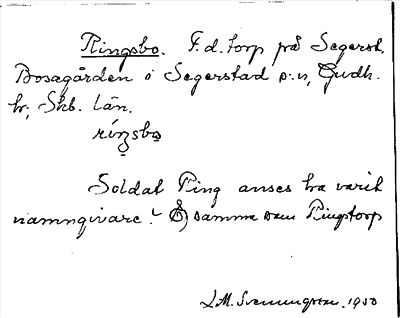 Ringsbo. F.d. torp på Segerst.
Bosagården i Segerstad s:n, Gudh.
hr; Skb. län.
Soldat Ring anses ha varit
namngivare. samma som Ringstorp
1950